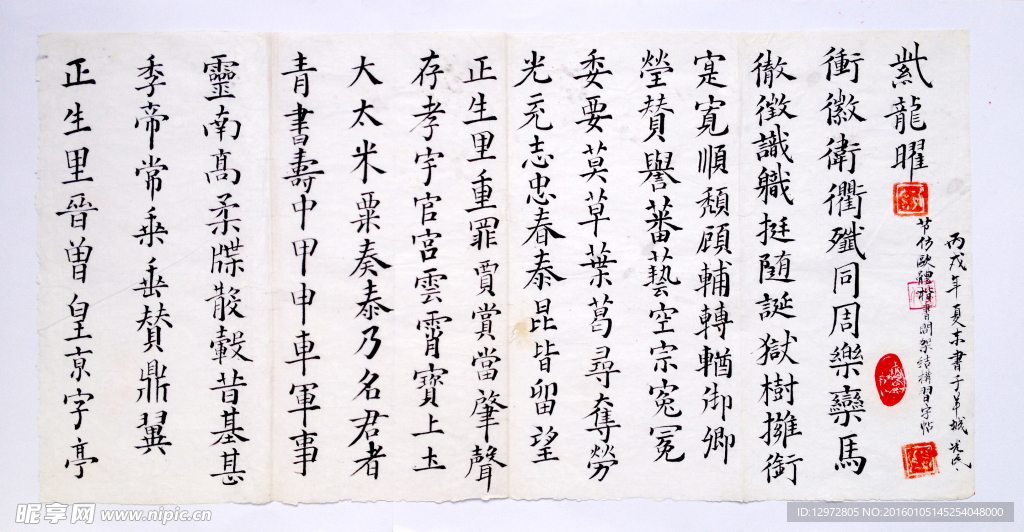 正生里晉曽皇京字亭
季帝常乗垂賛鼎翼
靈南髙柔牒散轂昔基甚
青書壽中甲申車軍事
大太米粟奏泰乃名君者
存孝宇官宫雲霄寳上土
正生里重罪賈賞當肇聲
光元志忠春泰昆皆留望
委要莫草葉葛尋奪勞
瑩賛譽蕃藝空宗寃冕
寔寛順頽顧輔轉輶御卿
徹徵識職挺随誕獄樹擁銜
衝徽衛衢殱同周樂欒馬
紫龍曜
节仿歐體楷書間架结構習字帖
丙戌年夏末書于羊城
昵享网 www.nipic.cn
ID:12972805 NO:20160105145254048000